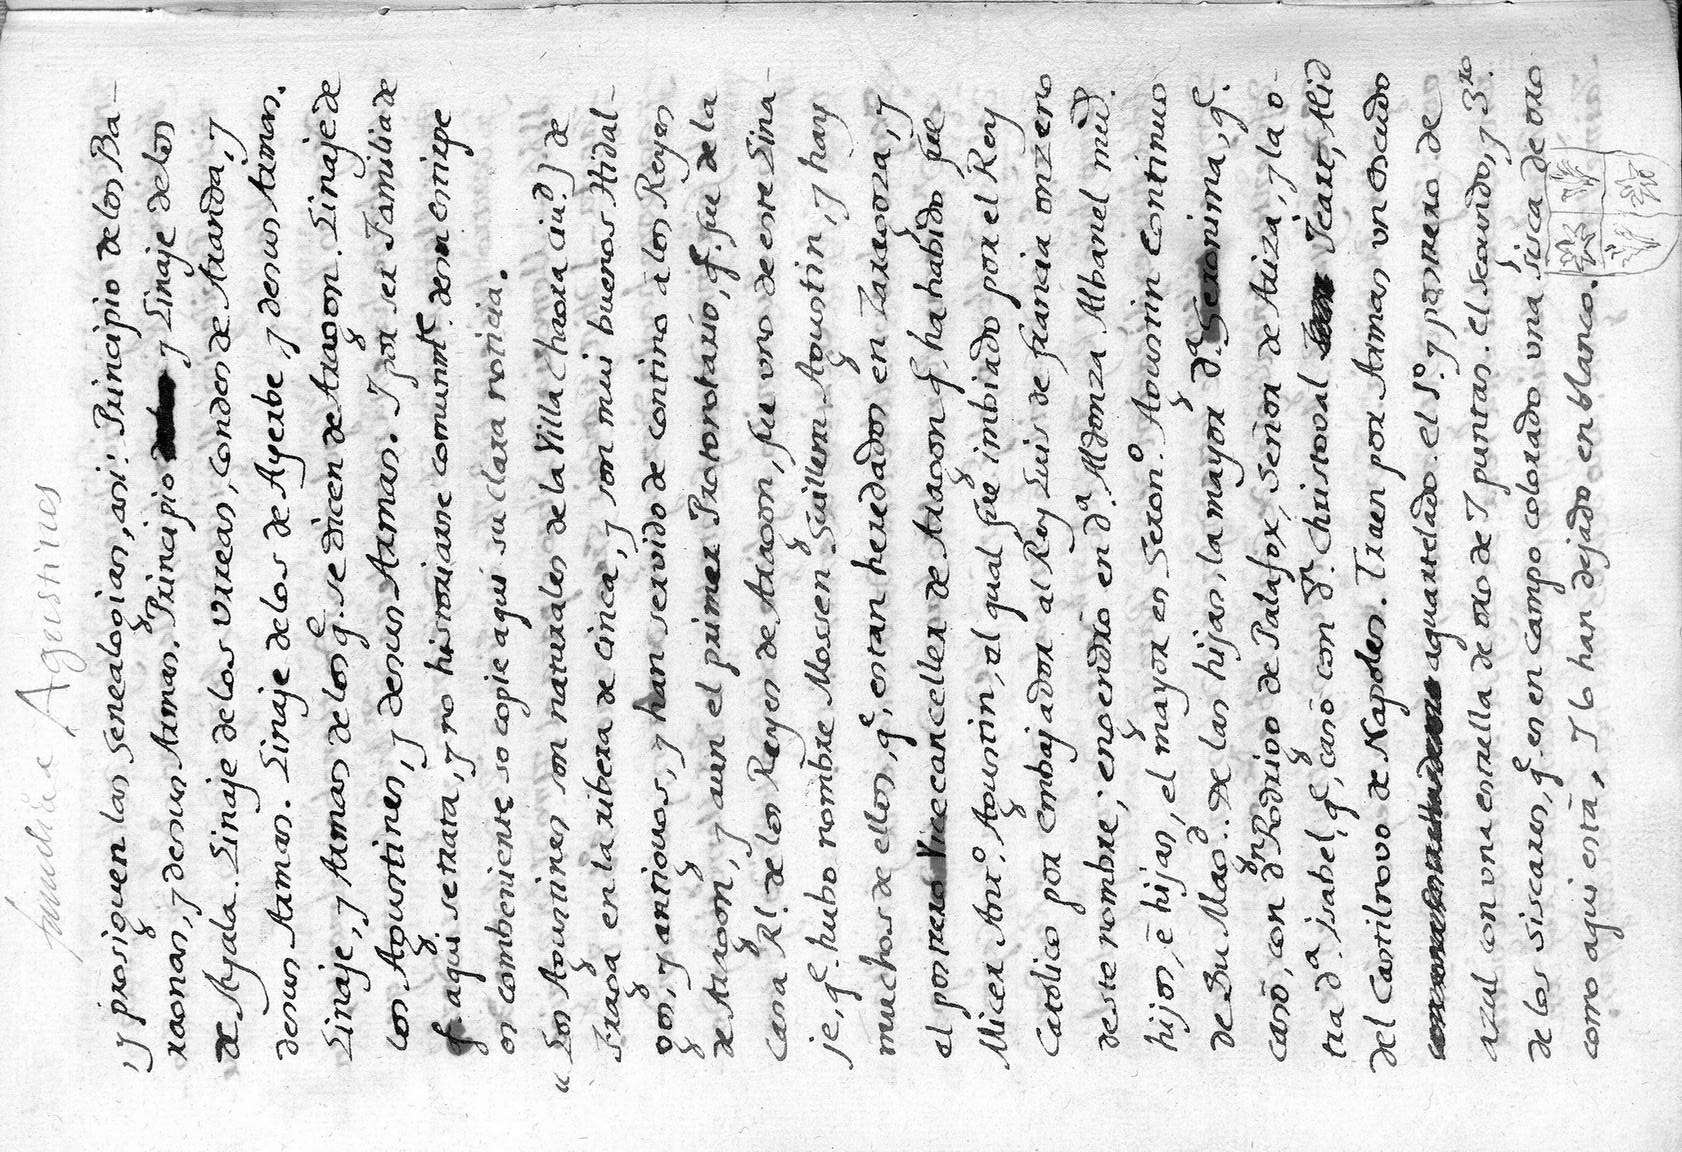 familia Agustines
, y prosiguen las Genealogias, asi: Principio de los Ba-
raonas, y desus Armas. Principio y Linaje delos
de Ayala. Linaje de los Urreas, condes de Aranda, y
desus Armas. Linaje delos de Ayerbe, y desus Armas.
Linaje, y Armas de los q.e se dicen de Aragon. Linaje de
los Agustines, y desus Armas. I por ser Familia de
q.e aqui setrata, y no historiarse comunm.te desu estirpe
es combeniente so copie aqui su clara noticia.
"Los Agustines son naturales de la Villa chaora ciu.d y de
Fraga en la ribera de cinca, y son mui buenos Hidal-
gos, y antiguos, y han servido de contino a los Reyes
de Aragon, y aun el primer Protonotario, q.e fue de la
Casa Rl. de los Reyes de Aragon, fue uno de este Lina-
je, q.e hubo nombre Mossen Guillem Agustin, y hay
muchos de ellos, q.e estan heredados en Zaragoza, y
el postrero Vicecanceller de Aragon q.e ha habido fue
Micer Ant.o Agustin, al qual fue imbiado por el Rey
Catolico por embajador al Rey Luis de francia onzeno
deste nombre; engendró en d.a Aldonza Albanel much.
hijos, é hijas, el mayor es Geron.o Agustin Continuo
de Su Mag.d.. De las hijas, la mayor d.a Geronima, q.e
casó, con d.n Rodrigo de Palafox, señor de Ariza, y la o-
tra d.a Isabel, q.e casó con d.n Christoval Icart, Alid
del Castilnovo de Napoles. Traen por Armas un escudo
aquartelado. el 1.o y postrero de
azul con una estrella de oro de 7 puntas. el segundo, y 3.ro
de los siscares, q.e es en campo colorado una sisca de oro
como aqui está, y lo han dejado en blanco.